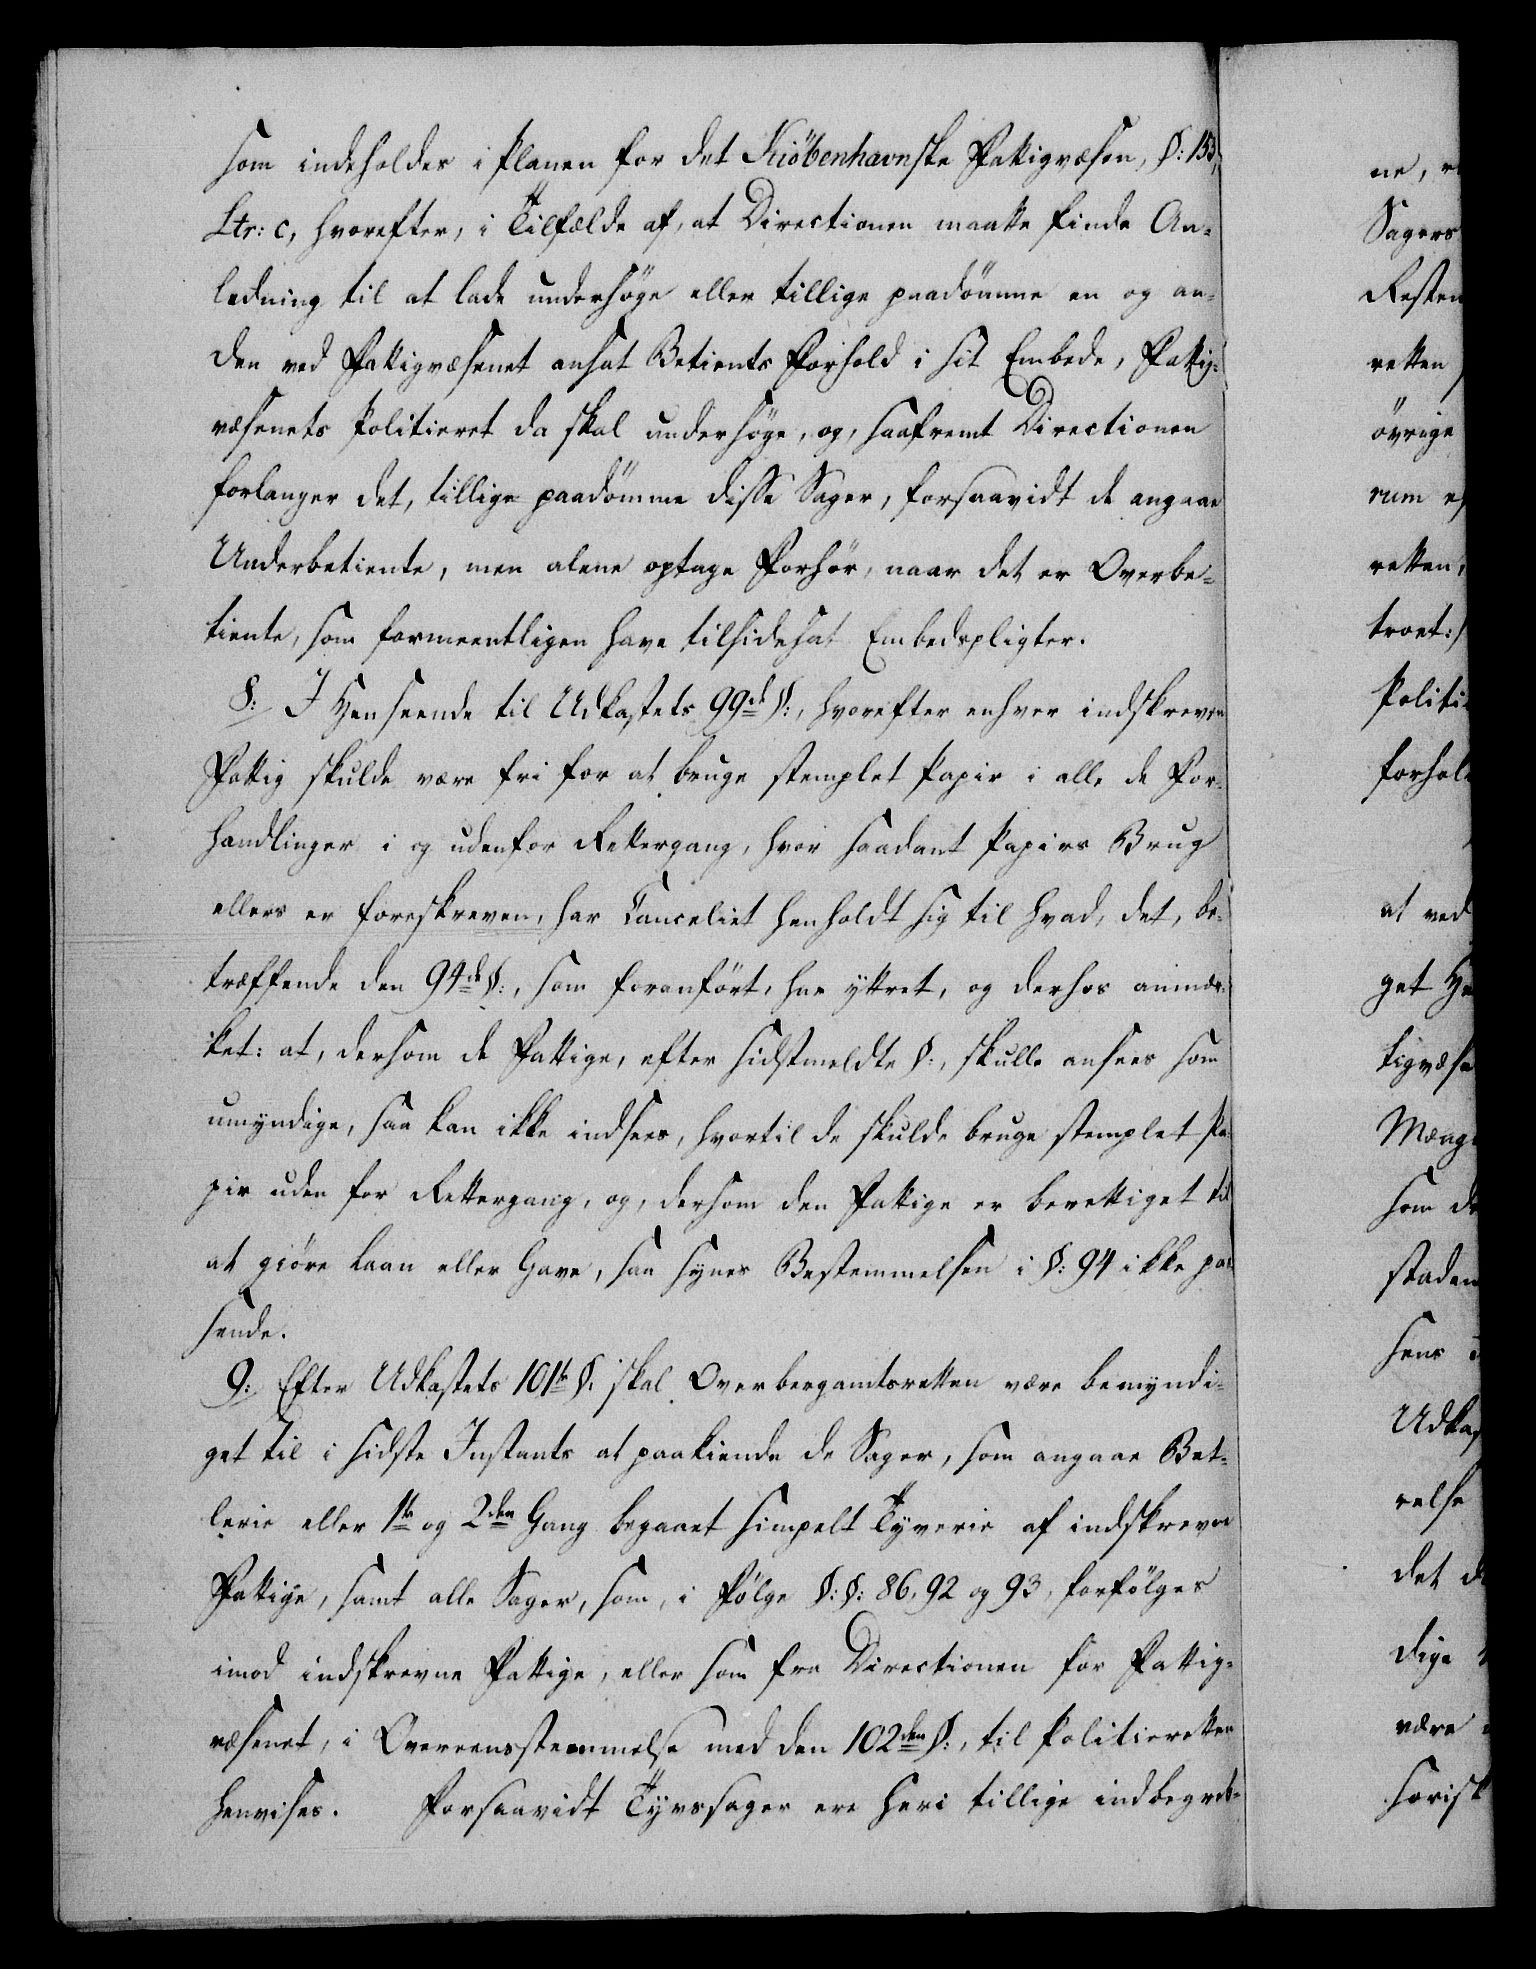 som indeholdes i Planen for det Kiöbenhavnske Fattigvæsen, §: 153,
Ltr: c, hvorefter, i Tilfælde af, at Directionen maatte finde An-
ledning til at lade undersöge eller tillige paadömme en og an-
den ved Fattigvæsenet ansat Betients Forhold i sit Embede, Fattig-
væsenets Politieret da skal undersöge, og, saafremt Directionen
forlanger det, tillige paadömme disse Sager, forsaavidt de angaae
Underbetiente, men alene optage Forhör, naar det er Overbe-
tiente, som formeentligen have tilsidesat Embedspligter.
8: I Henseende til Udkastets 99de §:, hvorefter enhver indskreven
Fattig skulde være fri for at bruge stemplet Papir i alle de For-
handlinger i og udenfor Rettergang, hvor saadant Papirs Brug
ellers er foreskreven, har Cancelliet henholdt sig til hvad, det, be-
træffende den 94de §:, som foranfört, har yttret, og derhos anmær-
ket: at, dersom de Fattige, efter sidstmeldte §:, skulle ansees som
umyndige, saa kan ikke indsees, hvortil de skulde bruge stemplet Pa-
pir uden for Rettergang, og, dersom den Fattige er berettiget til
at giöre Laan eller Gave, saa synes Bestemmelsen i §: 94 ikke pas-
sende.
9: Efter Udkastets 101te §: skal Overbergamtsretten være bemyndi-
get til i sidste Instants at paakiende de Sager, som angaae Bet-
lerie eller 1te og 2den Gang begaaet simpelt Tyverie af indskrevne
Fattige, samt alle Sager, som, i Fölge §:§: 86, 92 og 93, forfölges
imod indskrevne Fattige, eller som fra Directionen for Fattig-
væsenet, i Overeensstemmelse med den 102den §:, til Politieretten
henvises. Forsaavidt Tyvssager ere heri tillige indbegreb-
ne,
Sagers
Resten
retten
övrige
rum
retten,
troet:
Politi
forhol
at ved
get
tigvæse
Mæng
som
staden
sens
Udkas
relse
det
dige
være